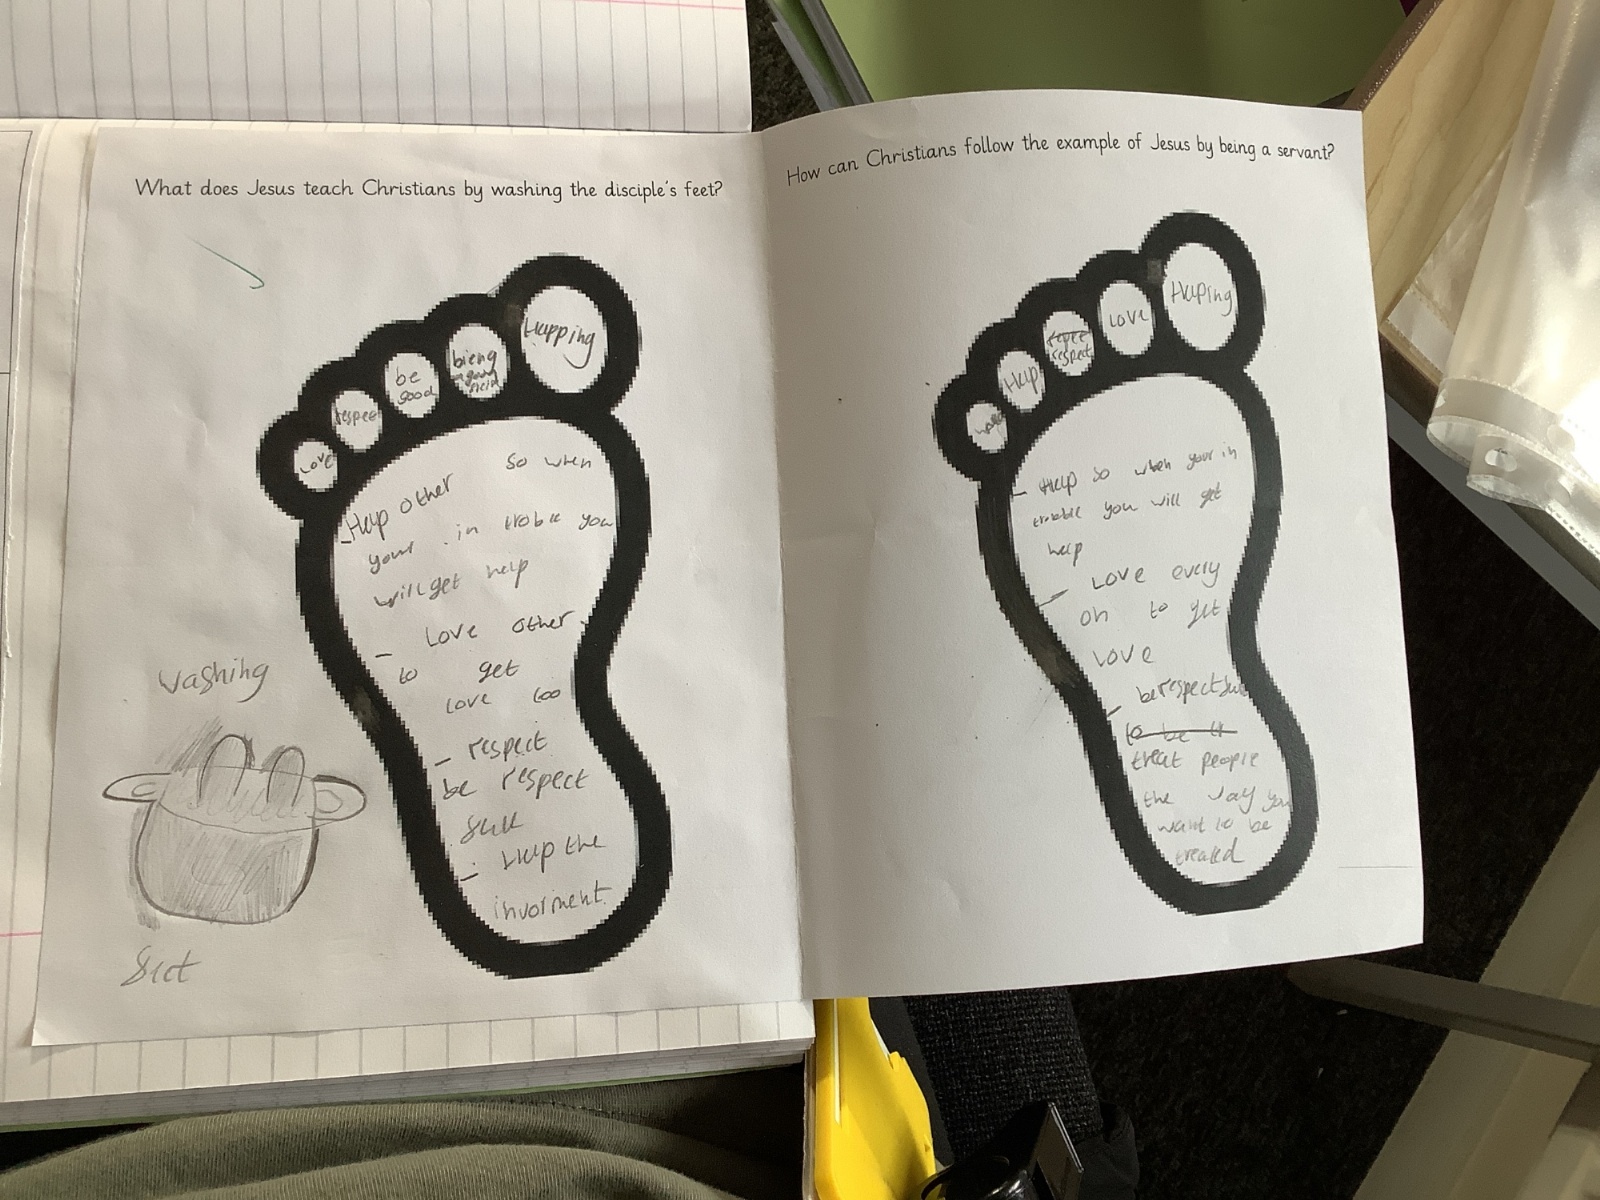 What does Jesus teach Christians by washing the disciple's feet?
Happing
bieng
be
good
respect
Love
Help other so when
your in troble you
will get help
- Love other
to get
love too
- respect
be respect
full
- Help the
invorment.
washing
feet
How can Christians follow the example of Jesus by being a servant?
Helping
Love
respect
Help
- Help so when your in
trobble you will get
help
- Love every
on to get
love
- be respectful
to be tr
treat people
the way you
want to be
treated